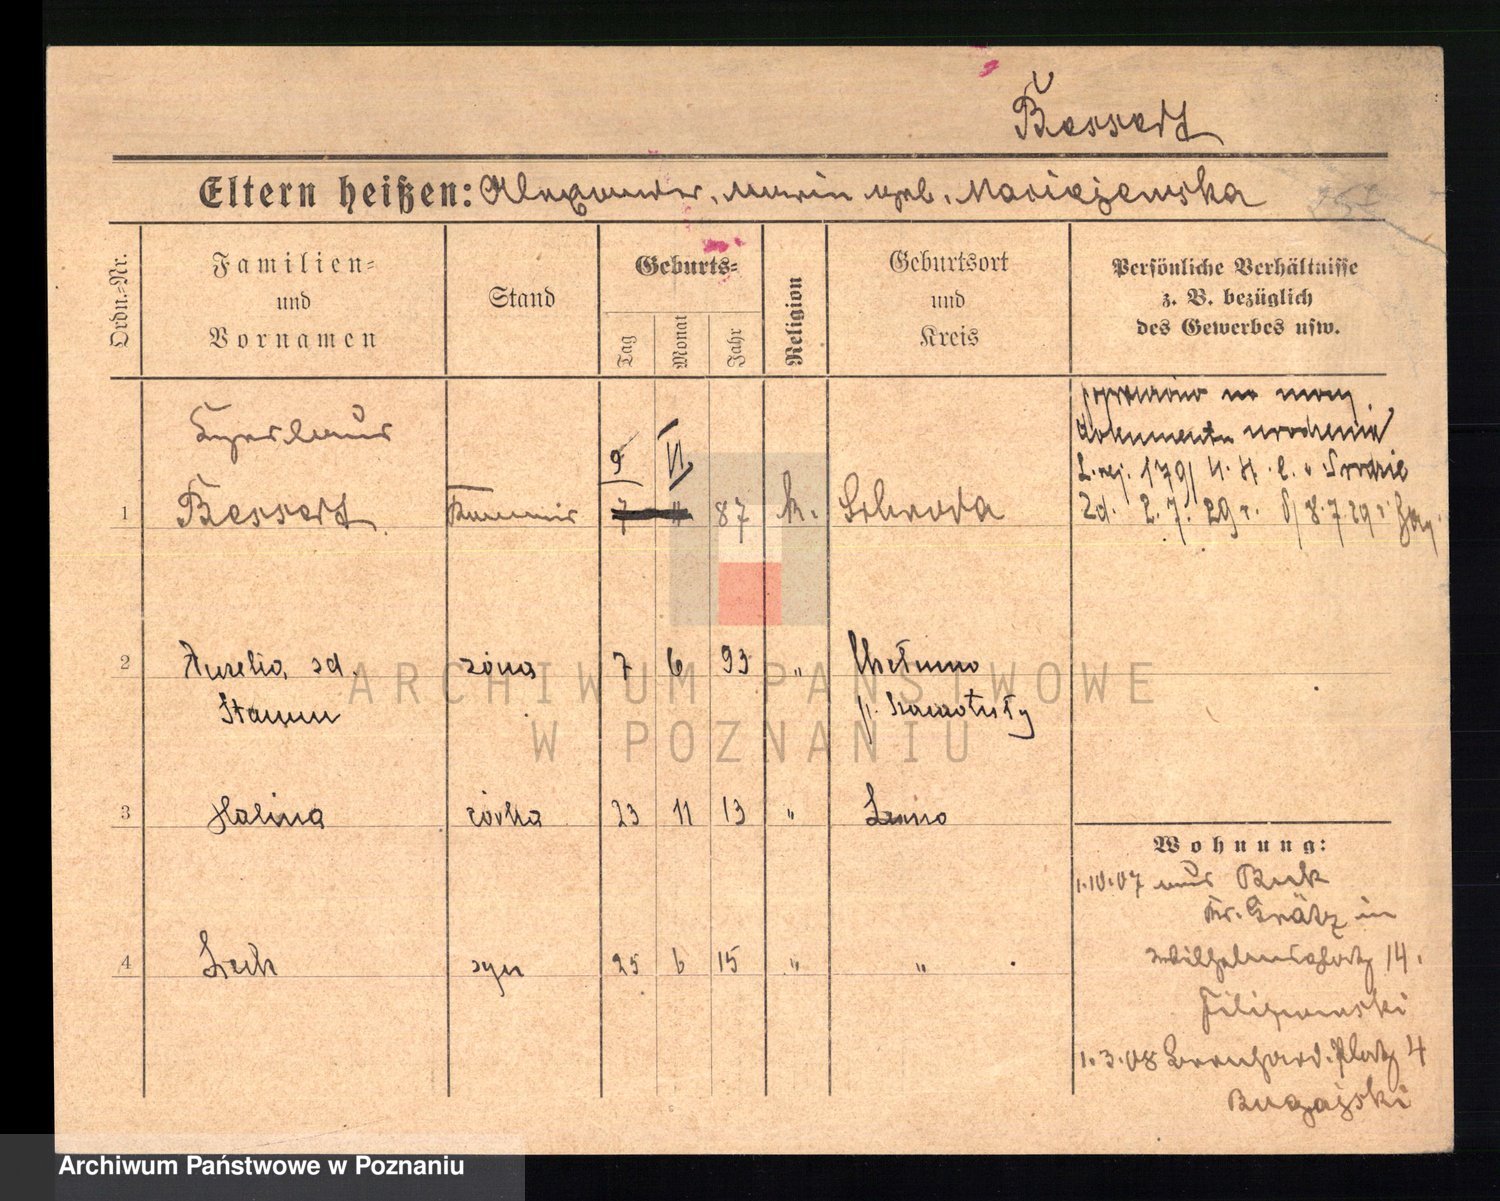 Bessert
Eltern heißen: Alexander, Maria geb. Maciejewska
Ordn.-Nr.
Familien-
und
Vornamen
Stand
Geburts-
Tag
Monat
Jahr
Religion
Geburtsort
und
Kreis
Persönliche Verhältnisse
z. B. bezüglich
des Gewerbes usw.
na mocy
dokumentu urodzenia
L. rej. 179
9 VI
1 Bessert 7 87 k. Schroda
2. 7. 29 r. 8.7.29 r.
2 Aurelia zd. żona 7 6 93 " Chełmno
Stamm p. Szamotuły
3 Halina córka 23 11 13 "
Wohnung:
1.10.07 aus Buk
Kr. Grätz in
4 Lech syn 25 6 15 " "
Wilhelmsplatz 14.
Filipowski
1.3.08 Bernhard. Platz 4
Bugajski
ARCHIWUM PAŃSTWOWE
W POZNANIU
Archiwum Państwowe w Poznaniu